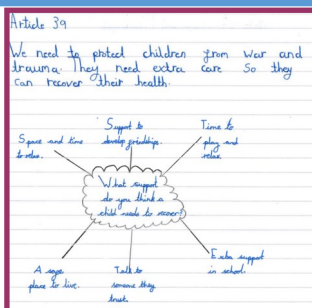 Article 39
We need to protect children from war and
trauma. They need extra care so they
can recover their health.
Support to
develop friendships.
Time to
play and
relax.
Space and time
to relax.
What support
do you think a
child needs to recover?
A safe
place to live.
Talk to
someone they
trust.
Extra support
in school.